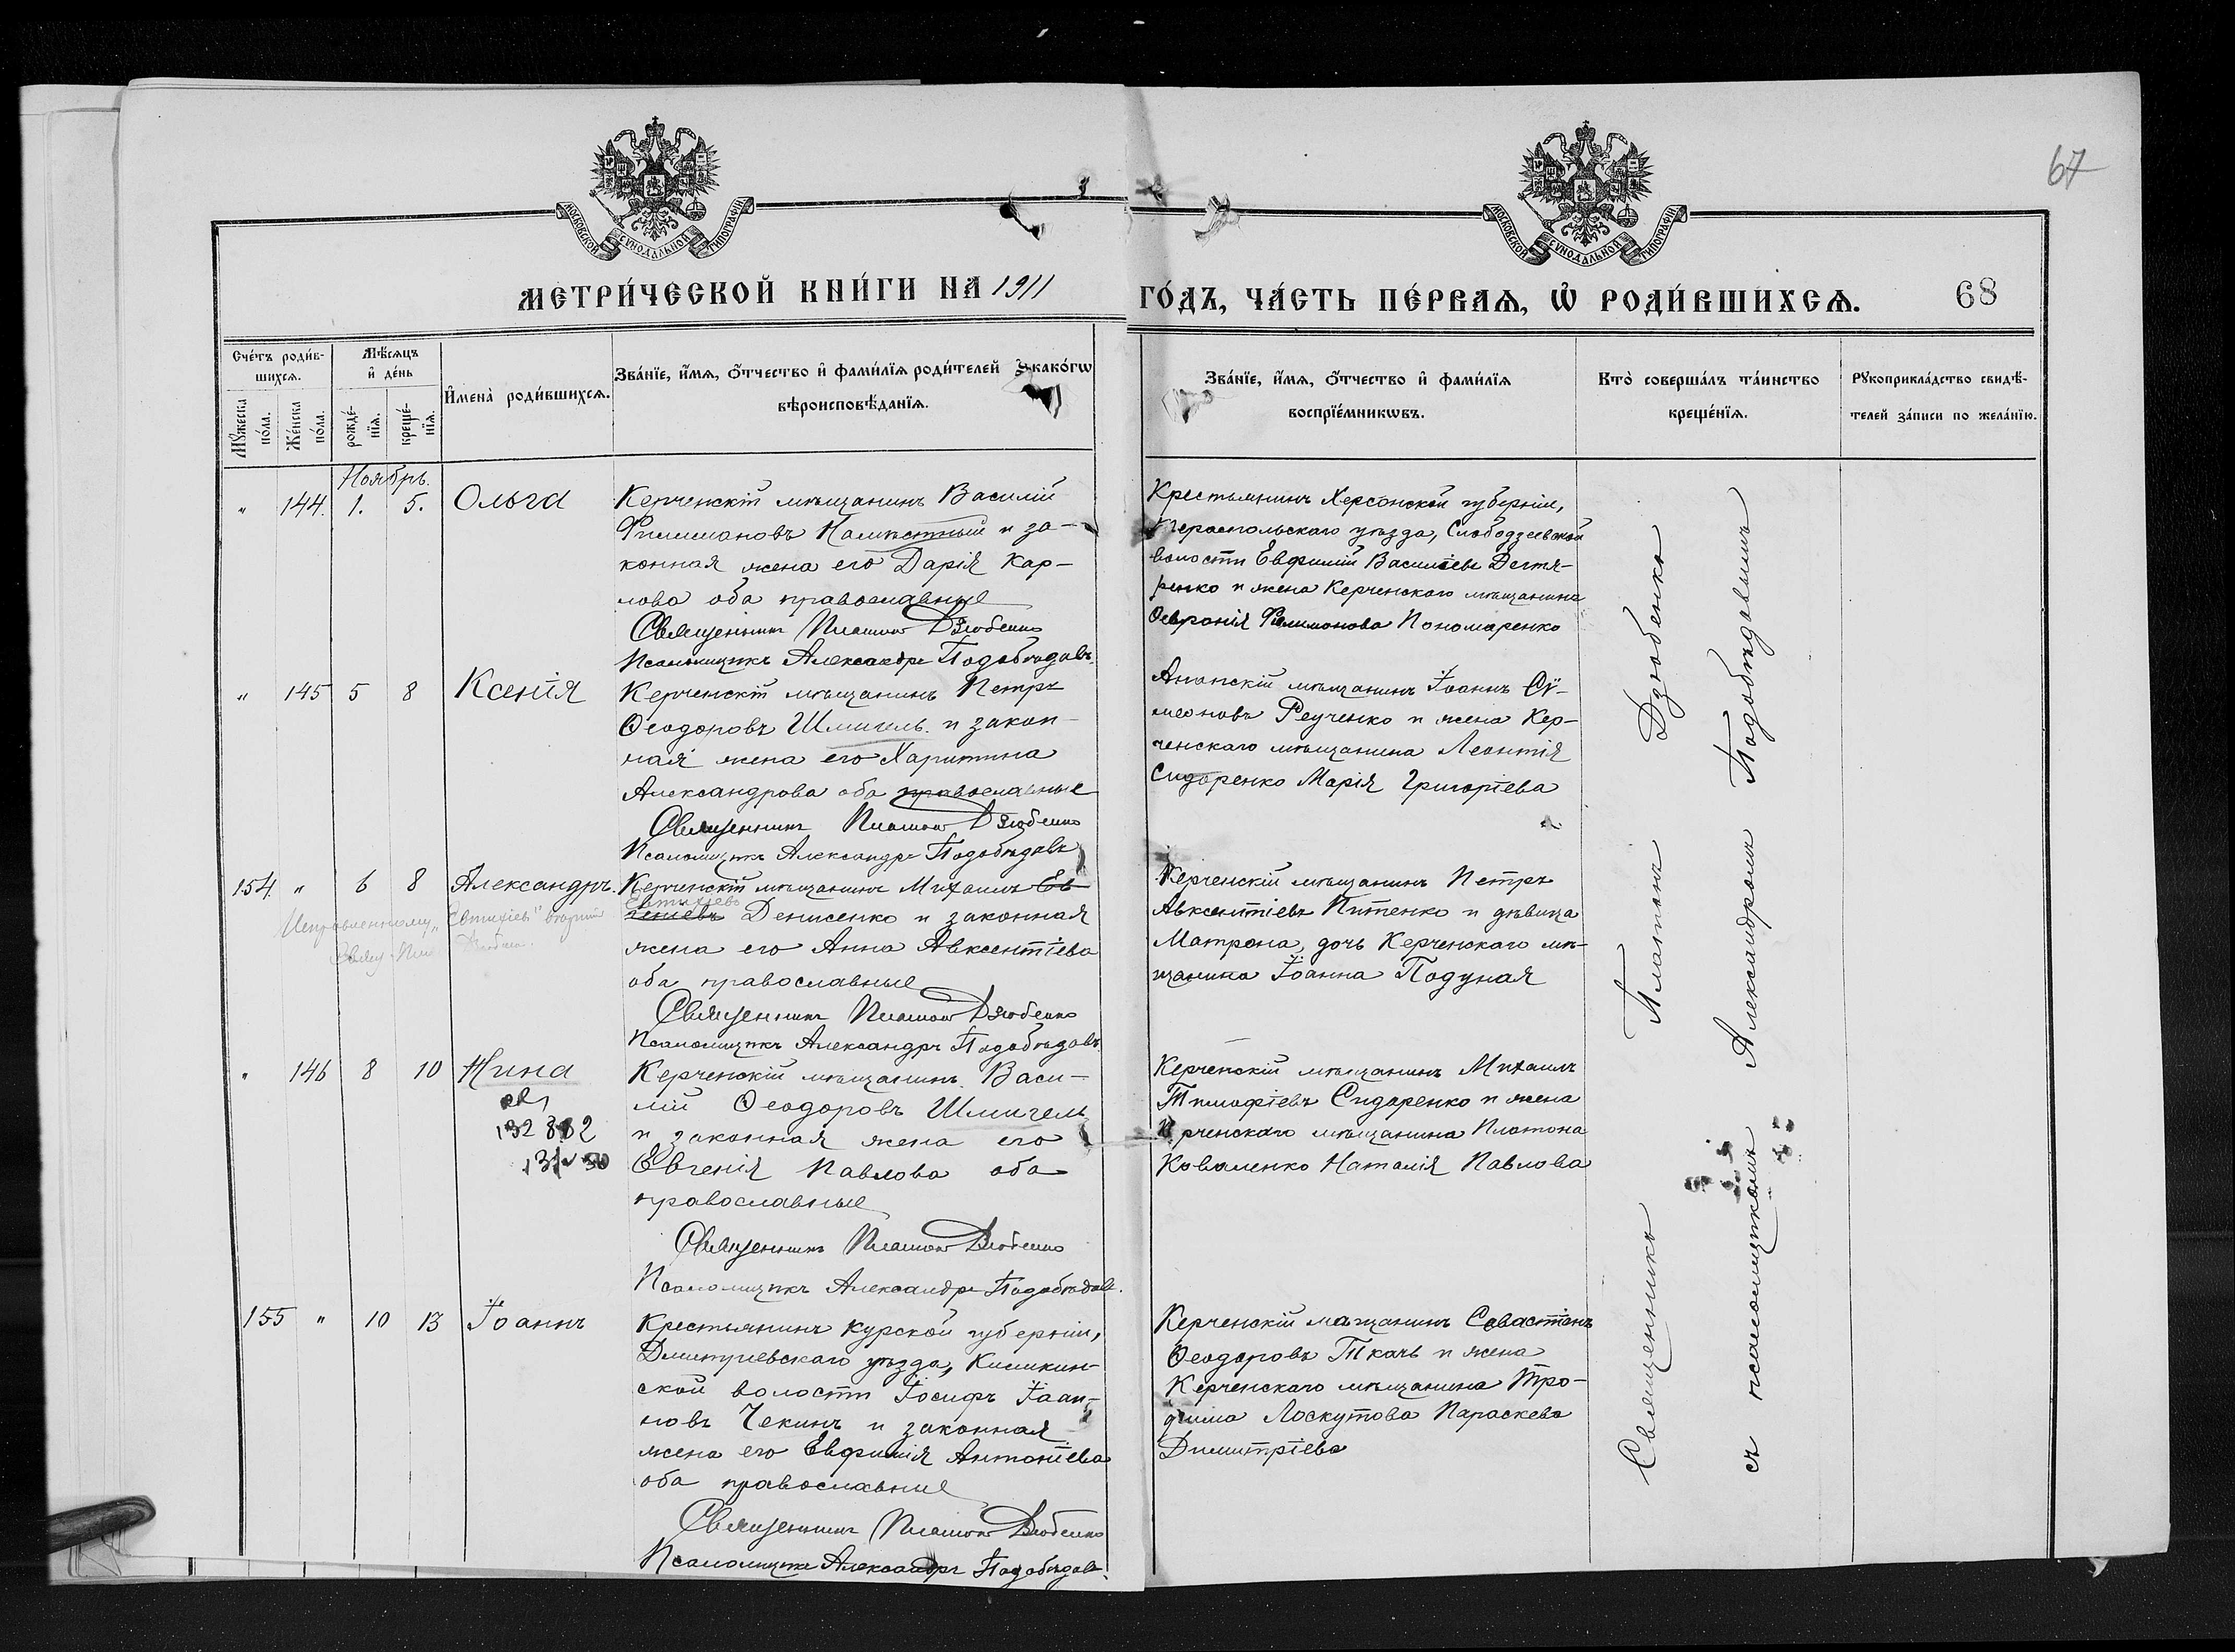 67
МОСКОВСКОЙ СѴНОДАЛЬНОЙ ТИПОГРАФІИ
МОСКОВСКОЙ СѴНОДАЛЬНОЙ ТИПОГРАФІИ
МЕТРИ́ЧЕСКОЙ КНИ́ГИ НА 1911
ГО́ДЪ, ЧА́СТЬ ПЕ́РВАЯ, Ѡ РОДИ́ВШИХСЯ.
68
Сче́тъ роди́в-
шихся.
Мѣ́сяцъ
и де́нь
Му́жеска
по́ла.
Же́нска
по́ла.
рожде́-
нїя.
креще́-
нїя.
Имена̀ роди́вшихся.
Зва́нїе, и́мя, о́тчество и фами́лїя роди́телей и како́гѡ
вѣроисповѣ́данїя.
Зва́нїе, и́мя, о́тчество и фами́лїя
воспрїе́мникѡвъ.
Кто̀ соверша́лъ та́инство
креще́нїя.
Рукоприкла́дство свидѣ́-
телей за́писи по жела́нїю.
Ноябрь.
" 144. 1. 5. Ольга
Керченскій мѣщанинъ Василій
Филимоновъ Намѣстный и за-
конная жена его Дарія Кар-
пова оба православные
Священникъ Платонъ Дзюбенко
Псаломщикъ Александръ Подобѣдовъ
Крестьянинъ Херсонской губерніи,
Тираспольскаго уѣзда, Слободзеевской
волости Евфимій Василіевъ Дегтя-
ренко и жена Керченскаго мѣщанина
Февронія Филимонова Пономаренко
" 145 5 8 Ксенія
Керченскій мѣщанинъ Петръ
Ѳеодоровъ Шмигель и закон-
ная жена его Харитина
Александрова оба православные
Священникъ Платонъ Дзюбенко
Псаломщикъ Александръ Подобѣдовъ
Анапскій мѣщанинъ Іоаннъ Сѵ-
меоновъ Реученко и жена Кер-
ченскаго мѣщанина Леонтія
Сидоренко Марія Григоріева
154. " 6 8 Александръ.
Керченскій мѣщанинъ Михаилъ Ев-
геніевъ Евтихіевъ Денисенко и законная
жена его Анна Авксентіева
оба православные
Священникъ Платонъ Дзюбенко
Псаломщикъ Александръ Подобѣдовъ
Исправленному „Евтихіевъ" вѣрить
Керченскій мѣщанинъ Петръ
Авксентіевъ Питенко и дѣвица
Матрона, дочь Керченскаго мѣ-
щанина Іоанна Подуная
" 146 8 10 Нина
Керченскій мѣщанинъ Васи-
лій Ѳеодоровъ Шмигель
и законная жена его
Евгенія Павлова оба
православные
Священникъ Платонъ Дзюбенко
Псаломщикъ Александръ Подобѣдовъ.
Керченскій мѣщанинъ Михаилъ
Тимофіевъ Сидоренко и жена
Керченскаго мѣщанина Платона
Коваленко Наталія Павлова
155 " 10 13 Іоаннъ
Крестьянинъ Курской губерніи,
Дмитріевскаго уѣзда, Кишкин-
ской волости Іосифъ Іоан-
новъ Чекинъ и законная
жена его Евфимія Антоніева
оба православные
Священникъ Платонъ Дзюбенко
Псаломщикъ Александръ Подобѣдовъ.
Керченскій мѣщанинъ Севастіанъ
Ѳеодоровъ Ткачъ и жена
Керченскаго мѣщанина Тро-
фима Лоскутова Параскева
Димитріева
Священникъ Платонъ Дзюбенко
съ псаломщикомъ Александромъ Подобѣдовымъ